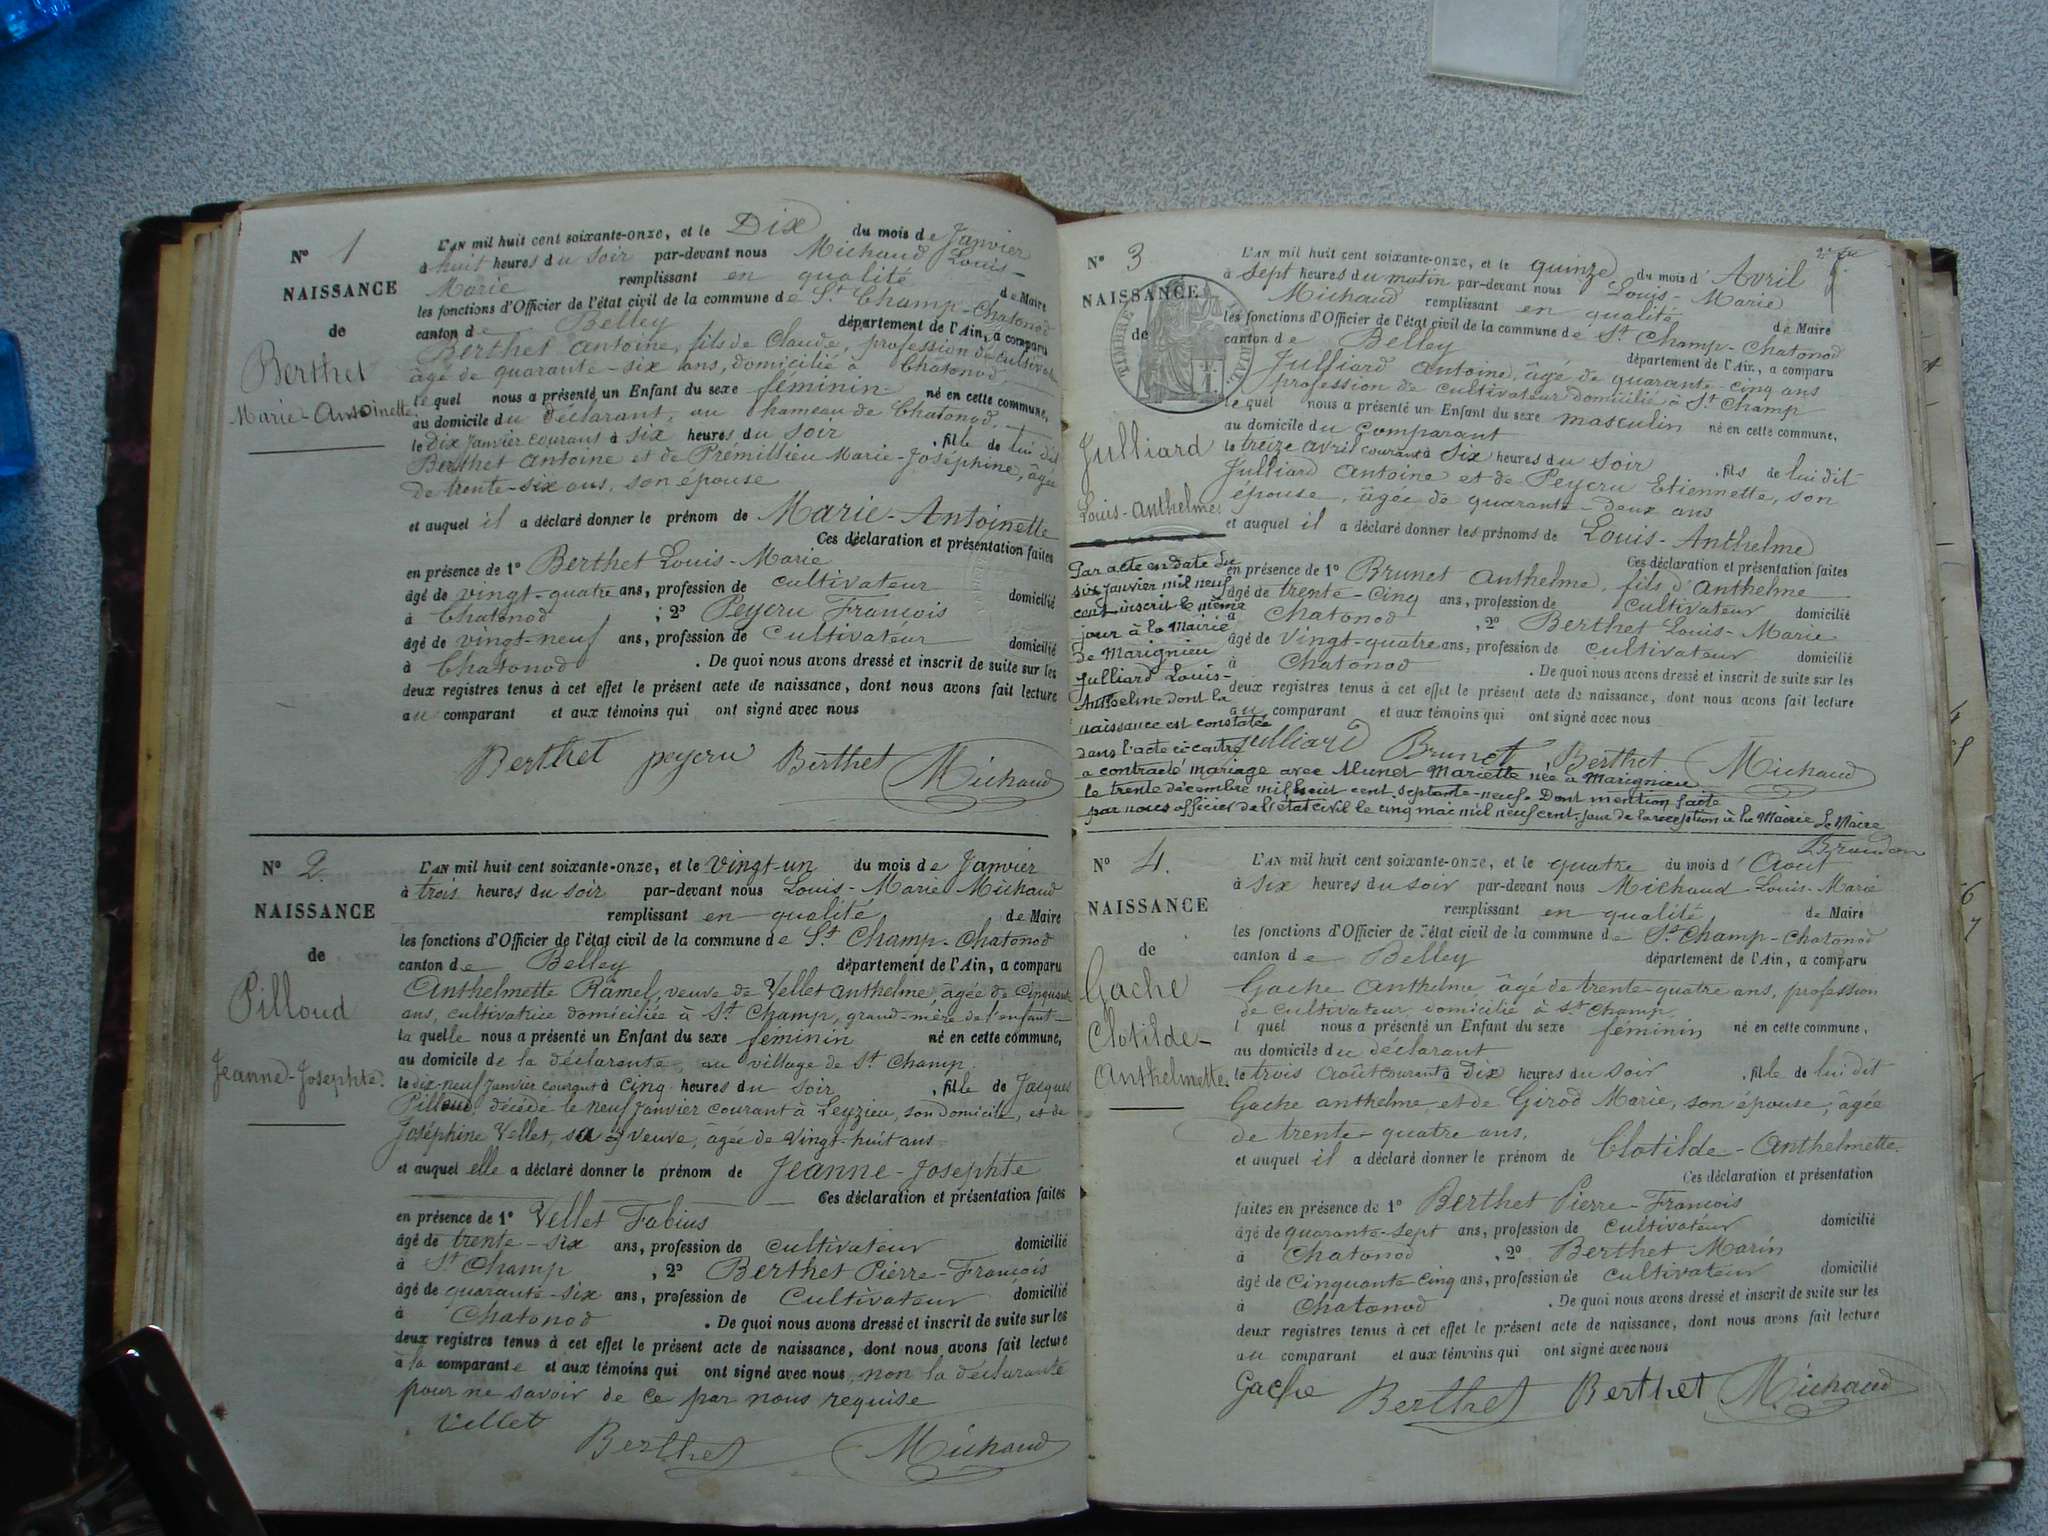 N° 1
NAISSANCE
de
Berthet
Marie-Antoinette.
L'AN mil huit cent soixante-onze, et le Dix du mois de Janvier
à huit heures du soir par-devant nous Michaud Louis-
Marie remplissant en qualité de Maire
les fonctions d'Officier de l'état civil de la commune de St Champ-Chatonod
canton de Belley département de l'Ain, a comparu
Berthet Antoine, fils de Claude, profession de cultivateur
âgé de quarante-six ans, domicilié à Chatonod
lequel nous a présenté un Enfant du sexe féminin né en cette commune,
au domicile du déclarant, au hameau de Chatonod,
le Dix Janvier courant à six heures du soir , fille de lui dit
Berthet Antoine et de Prémillieu Marie-Joséphine, âgée
de trente-six ans, son épouse
et auquel il a déclaré donner le prénom de Marie-Antoinette
Ces déclaration et présentation faites
en présence de 1° Berthet Louis-Marie
âgé de vingt-quatre ans, profession de cultivateur domicilié
à Chatonod ; 2° Peycru François
âgé de vingt-neuf ans, profession de cultivateur domicilié
à Chatonod . De quoi nous avons dressé et inscrit de suite sur les
deux registres tenus à cet effet le présent acte de naissance, dont nous avons fait lecture
au comparant et aux témoins qui ont signé avec nous
Berthet peycru Berthet Michaud
N° 2.
NAISSANCE
de
Pilloud
Jeanne-Josephte.
L'AN mil huit cent soixante-onze, et le vingt-un du mois de Janvier
à trois heures du soir par-devant nous Louis-Marie Michaud
remplissant en qualité de Maire
les fonctions d'Officier de l'état civil de la commune de St Champ-Chatonod
canton de Belley département de l'Ain, a comparu
Anthelmette Ramel, veuve de Vellet Anthelme, âgée de cinquante
ans, cultivatrice domiciliée à St Champ, grand-mère de l'enfant
laquelle nous a présenté un Enfant du sexe féminin né en cette commune,
au domicile de la déclarante, au village de St Champ
le dix-neuf Janvier courant à cinq heures du soir , fille de Jacques
Pilloud, décédé le neuf Janvier courant à Leyzieu, son domicile, et de
Joséphine Vellet, sa veuve, âgée de vingt-huit ans
et auquel elle a déclaré donner le prénom de Jeanne-Josephte
Ces déclaration et présentation faites
en présence de 1° Vellet Fabius
âgé de trente-six ans, profession de cultivateur domicilié
à St Champ , 2° Berthet Pierre-François
âgé de quarante-six ans, profession de Cultivateur domicilié
à Chatonod . De quoi nous avons dressé et inscrit de suite sur les
deux registres tenus à cet effet le présent acte de naissance, dont nous avons fait lecture
à la comparante et aux témoins qui ont signé avec nous, non la déclarante
pour ne savoir de ce par nous requise
Vellet Berthet Michaud
N° 3
NAISSANCE
de
Julliard
Louis-Anthelme
L'AN mil huit cent soixante-onze, et le quinze du mois d'Avril
à sept heures du matin par-devant nous Louis-Marie
Michaud remplissant en qualité de Maire
les fonctions d'Officier de l'état civil de la commune de St Champ-Chatonod
canton de Belley département de l'Ain, a comparu
Julliard Antoine, âgé de quarante-cinq ans
profession de cultivateur domicilié à St Champ
lequel nous a présenté un Enfant du sexe masculin né en cette commune,
au domicile du comparant
le treize avril courant à six heures du soir , fils de lui dit
Julliard Antoine et de Peycru Etiennette, son
épouse, âgée de quarante-deux ans
et auquel il a déclaré donner les prénoms de Louis-Anthelme
Ces déclaration et présentation faites
en présence de 1° Brunet Anthelme, fils d'Anthelme
âgé de trente-cinq ans, profession de cultivateur domicilié
à Chatonod , 2° Berthet Louis-Marie
âgé de vingt-quatre ans, profession de cultivateur domicilié
à Chatonod . De quoi nous avons dressé et inscrit de suite sur les
deux registres tenus à cet effet le présent acte de naissance, dont nous avons fait lecture
au comparant et aux témoins qui ont signé avec nous
Julliard Brunet Berthet Michaud
Par acte en date du
six Janvier mil neuf
cent inscrit le même
jour à la Mairie
de Marignieu
Julliard Louis-
Anthelme dont la
naissance est constatée
dans l'acte ci-contre
a contracté mariage avec Munet Mariette née à Marignieu
le trente décembre mil huit cent septante-neuf. Dont mention faite
par nous officier de l'état civil le cinq mai mil neuf cent, jour de la réception à la Mairie Le Maire
N° 4.
NAISSANCE
de
Gache
Clotilde-
Anthelmette.
L'AN mil huit cent soixante-onze, et le quatre du mois d'Août
à six heures du soir par-devant nous Michaud Louis-Marie
remplissant en qualité de Maire
les fonctions d'Officier de l'état civil de la commune de St Champ-Chatonod
canton de Belley département de l'Ain, a comparu
Gache Anthelme, âgé de trente-quatre ans, profession
de cultivateur, domicilié à St Champ
l quel nous a présenté un Enfant du sexe féminin né en cette commune,
au domicile du déclarant
le trois Août courant à Dix heures du soir , fille de lui dit
Gache anthelme et de Girod Marie, son épouse, âgée
de trente-quatre ans,
et auquel il a déclaré donner le prénom de Clotilde-Anthelmette.
Ces déclaration et présentation
faites en présence de 1° Berthet Pierre-François
âgé de quarante-sept ans, profession de cultivateur domicilié
à Chatonod , 2° Berthet Marin
âgé de cinquante-cinq ans, profession de cultivateur domicilié
à Chatonod . De quoi nous avons dressé et inscrit de suite sur les
deux registres tenus à cet effet le présent acte de naissance, dont nous avons fait lecture
au comparant et aux témoins qui ont signé avec nous
Gache Berthet Berthet Michaud